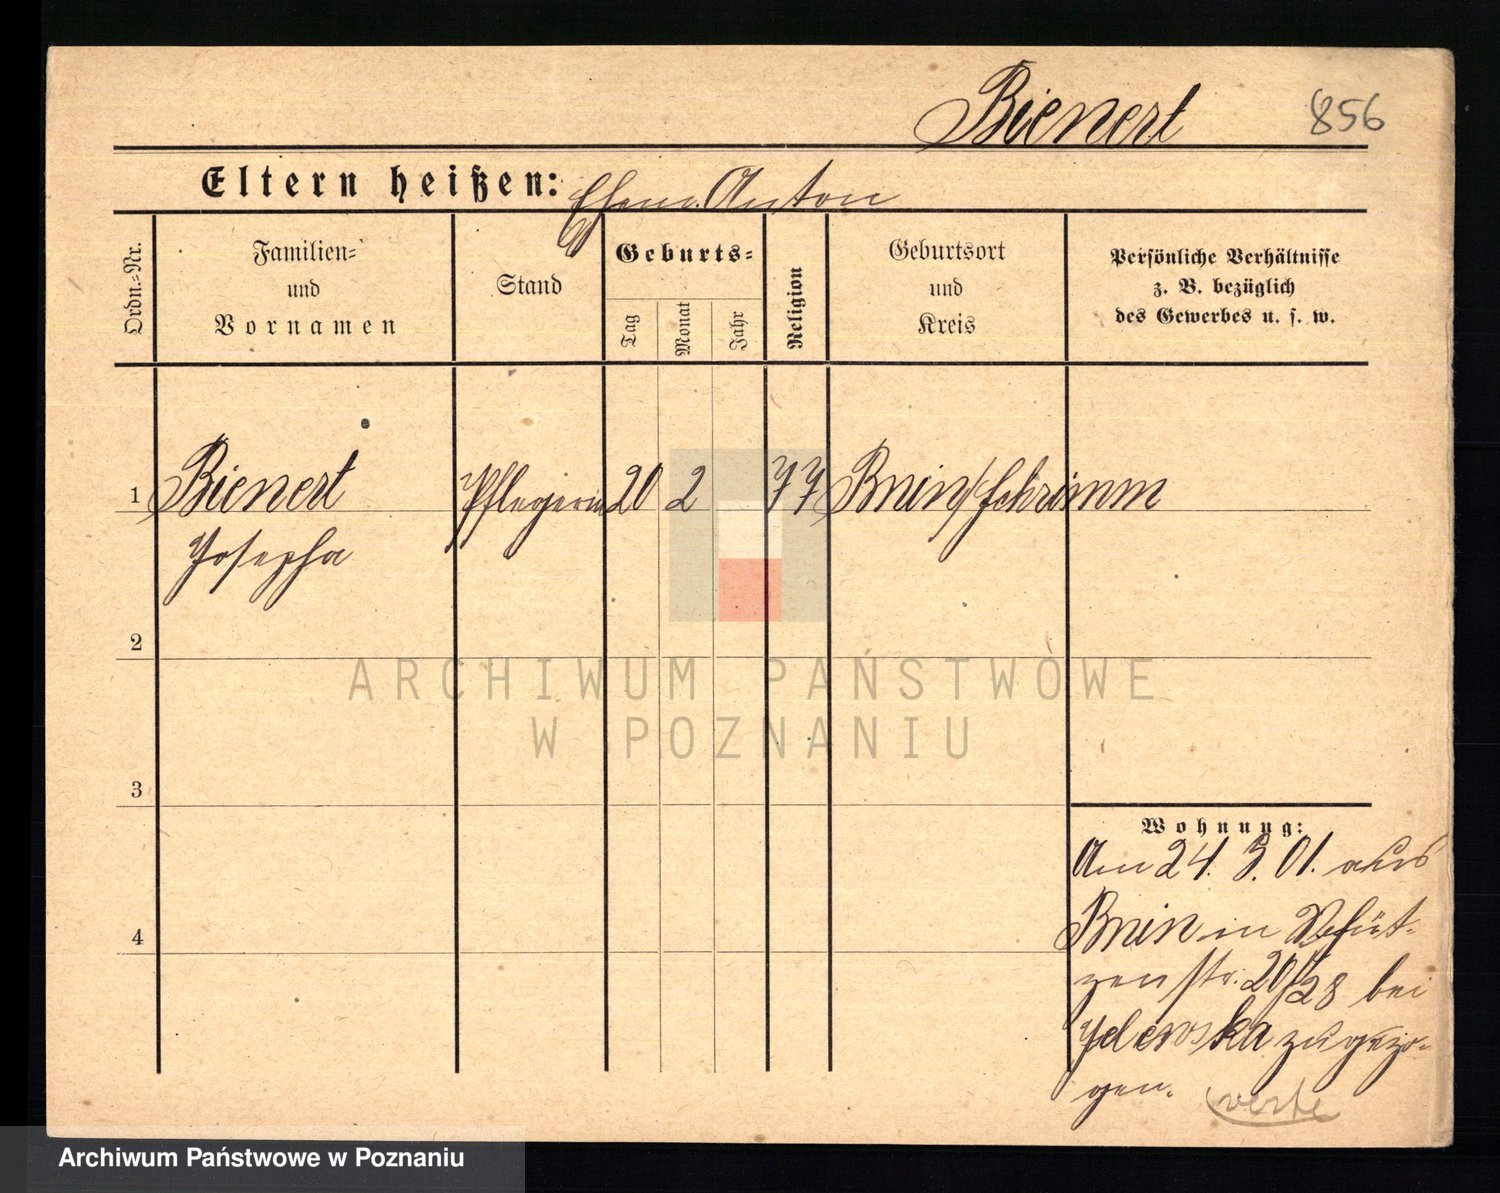 Bienert 856
Eltern heißen: Ehem. Anton
Ordn.-Nr.
Familien- und Vornamen
Stand
Geburts-
Tag
Monat
Jahr
Religion
Geburtsort und Kreis
Persönliche Verhältnisse
z. B. bezüglich
des Gewerbes u. s. w.
1 Bienert Pflegerin 20 2 77 Bnin/Schrimm
Josepha
2
ARCHIWUM PAŃSTWOWE
W POZNANIU
3
Wohnung:
Am 24. 3. 01. aus
Bnin in Schüt-
zenstr. 28 bei
zugezo-
gen.
verte
4
Archiwum Państwowe w Poznaniu